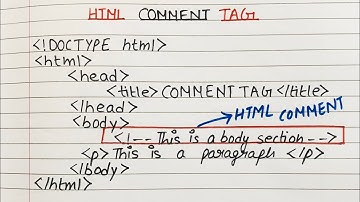 HTML COMMENT TAG
<!DOCTYPE html>
<html>
<head>
<title> COMMENT TAG </title>
</head>
<body>
HTML COMMENT
<!-- This is a body section -->
<p> This is a paragraph </p>
</body>
</html>